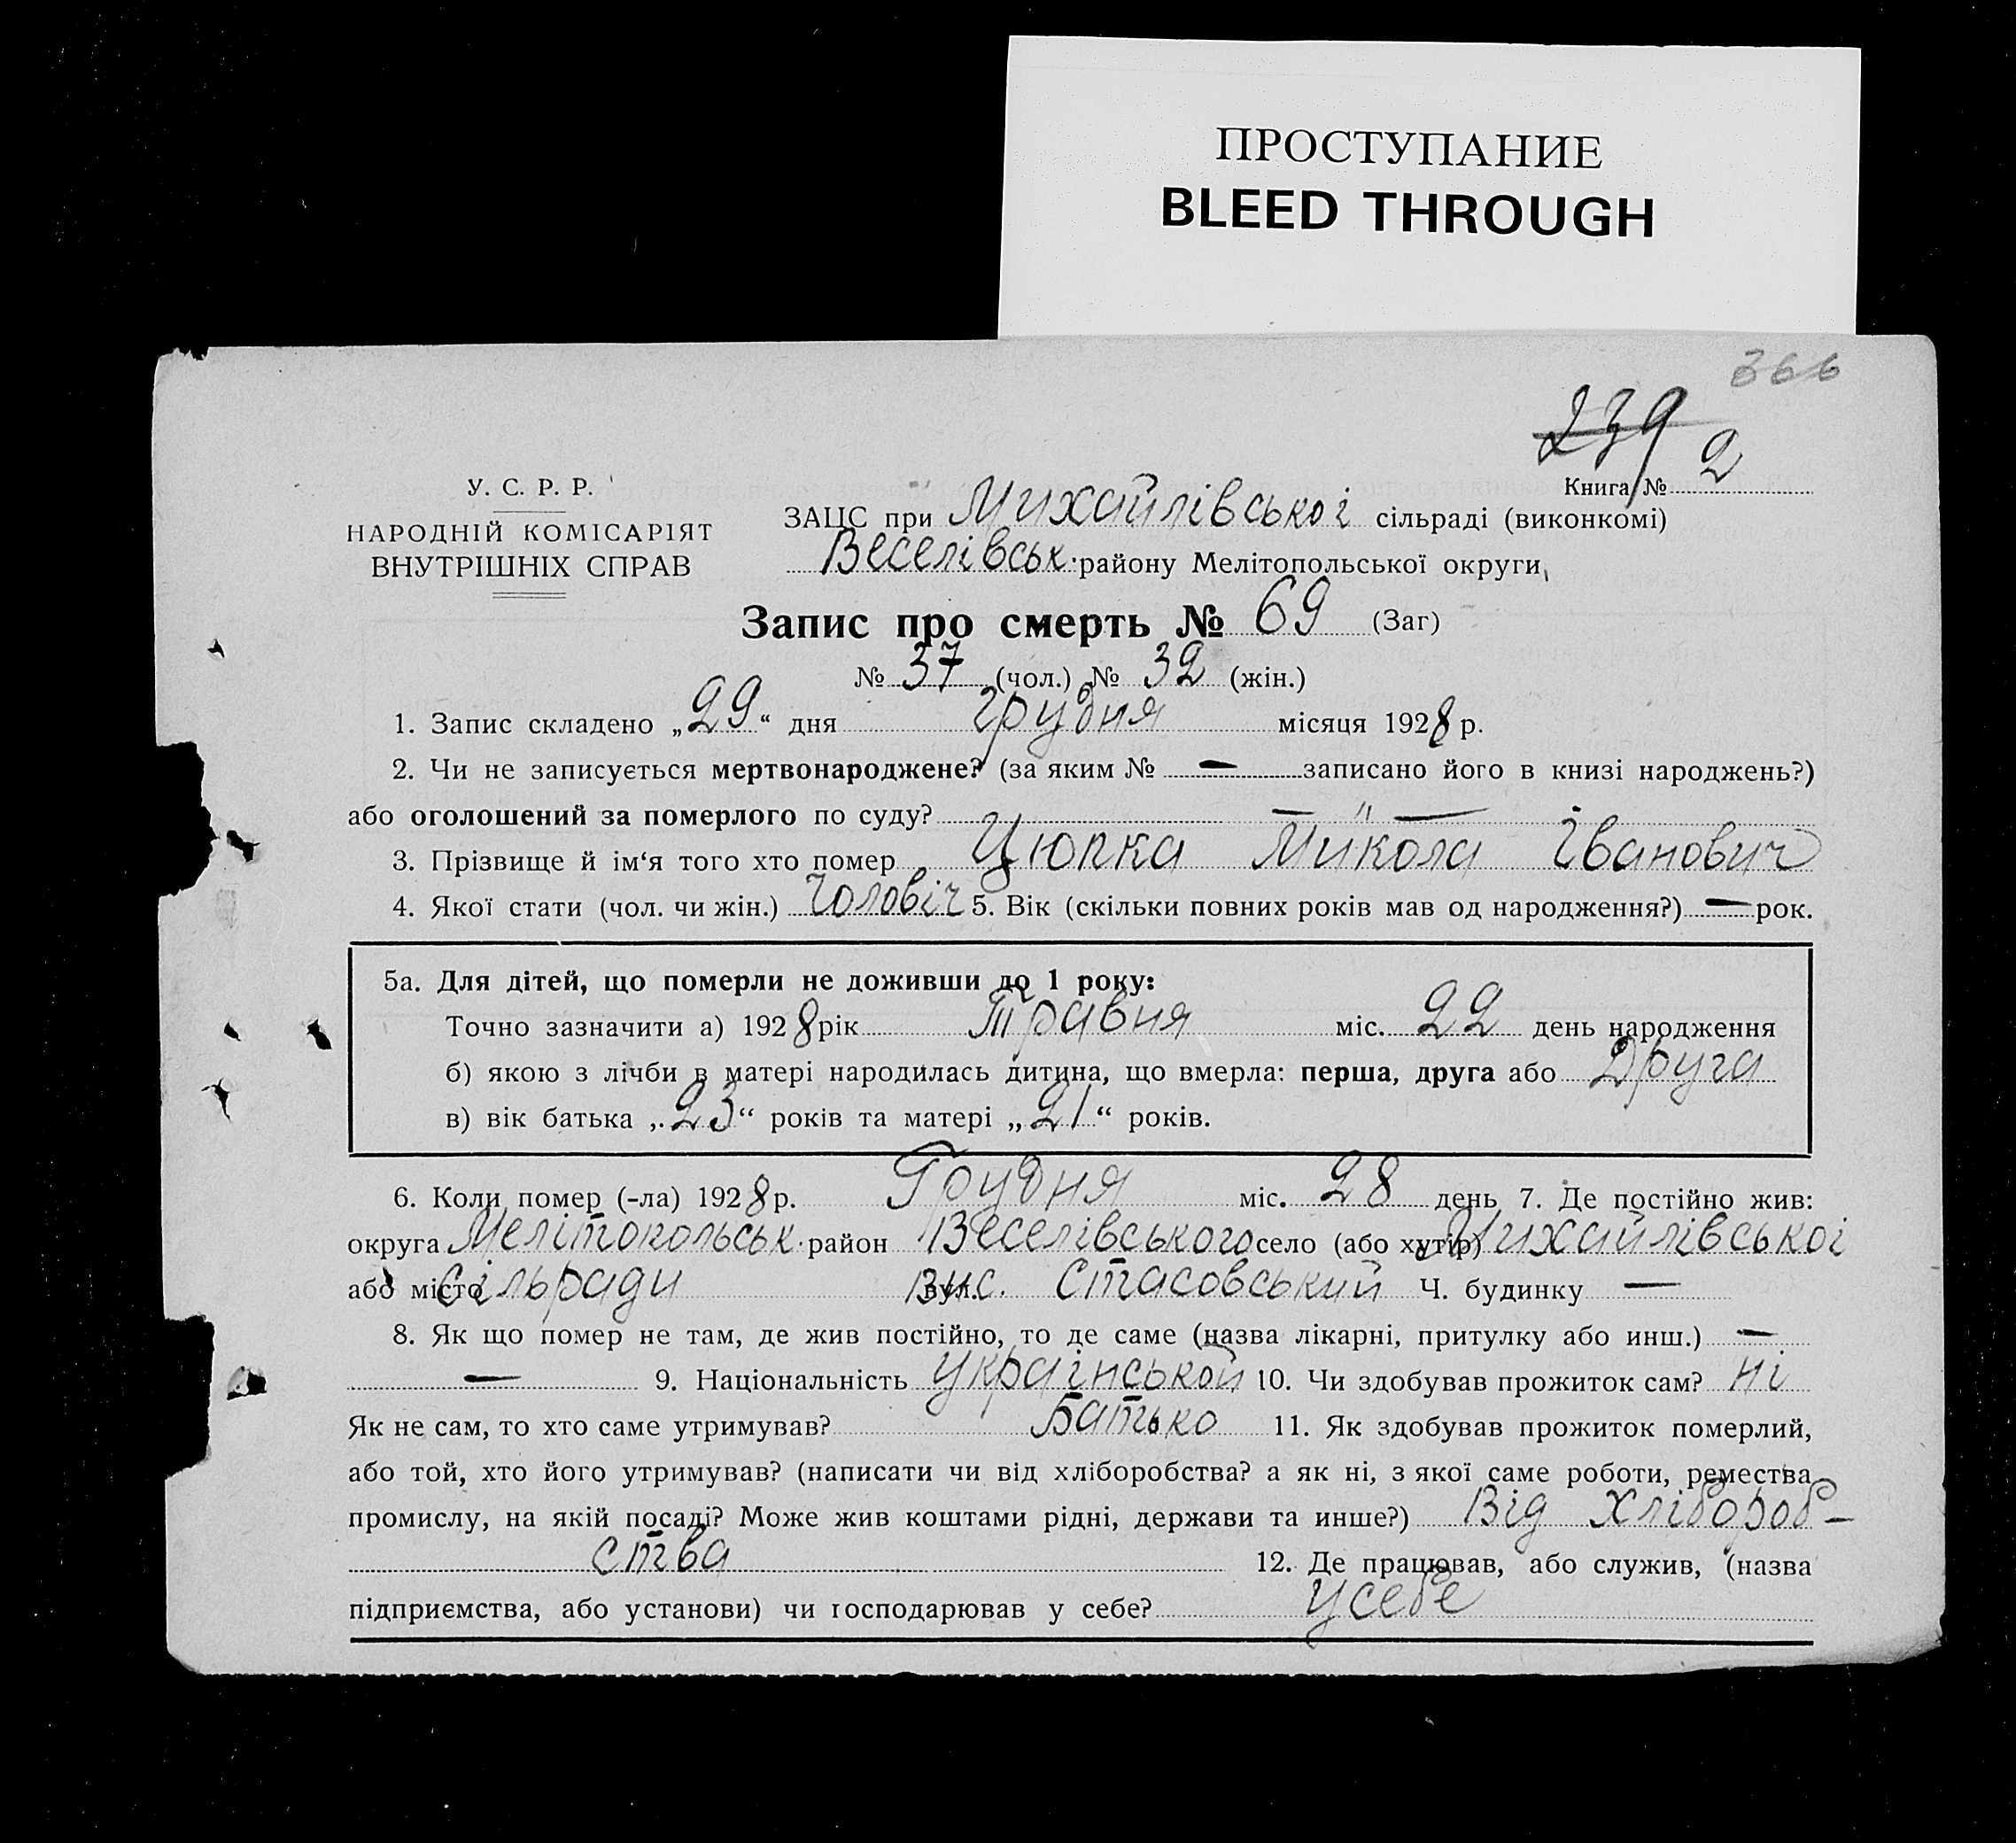 ПРОСТУПАНИЕ
BLEED THROUGH
366
239
Книга № 2
У. С. Р. Р.
НАРОДНІЙ КОМІСАРІЯТ
ВНУТРІШНІХ СПРАВ
ЗАЦС при Михайлівськоі сільраді (виконкомі)
Веселівськ. району Мелітопольської округи,
Запис про смерть № 69 (Заг)
№ 37 (чол.) № 32 (жін.)
1. Запис складено „29“ дня грудня місяця 1928 р.
2. Чи не записується мертвонароджене? (за яким № — записано його в книзі народжень?)
або оголошений за померлого по суду? — " —
3. Прізвище й ім‘я того хто помер Цюпка Микола Іванович
4. Якої стати (чол. чи жін.) Чоловіч 5. Вік (скільки повних років мав од народження?) — рок.
5а. Для дітей, що померли не доживши до 1 року:
Точно зазначити а) 1928 рік Травня міс. 22 день народження
б) якою з лічби в матері народилась дитина, що вмерла: перша, друга або Друга
в) вік батька „23“ років та матері „21“ років.
6. Коли помер (-ла) 1928 р. Грудня міс. 28 день 7. Де постійно жив:
округа Мелітопольськ. район Веселівського село (або хутір) Михайлівськоі
або місто сільради вул. Вис. Стасовський Ч. будинку —
8. Як що помер не там, де жив постійно, то де саме (назва лікарні, притулку або инш.) —
— 9. Національність Украінськой 10. Чи здобував прожиток сам? ні
Як не сам, то хто саме утримував? Батько 11. Як здобував прожиток померлий,
або той, хто його утримував? (написати чи від хліборобства? а як ні, з якої саме роботи, ремества
промислу, на якій посаді? Може жив коштами рідні, держави та инше?) Від хлібороб-
ства 12. Де працював, або служив, (назва
підприємства, або установи) чи господарював у себе? у себе